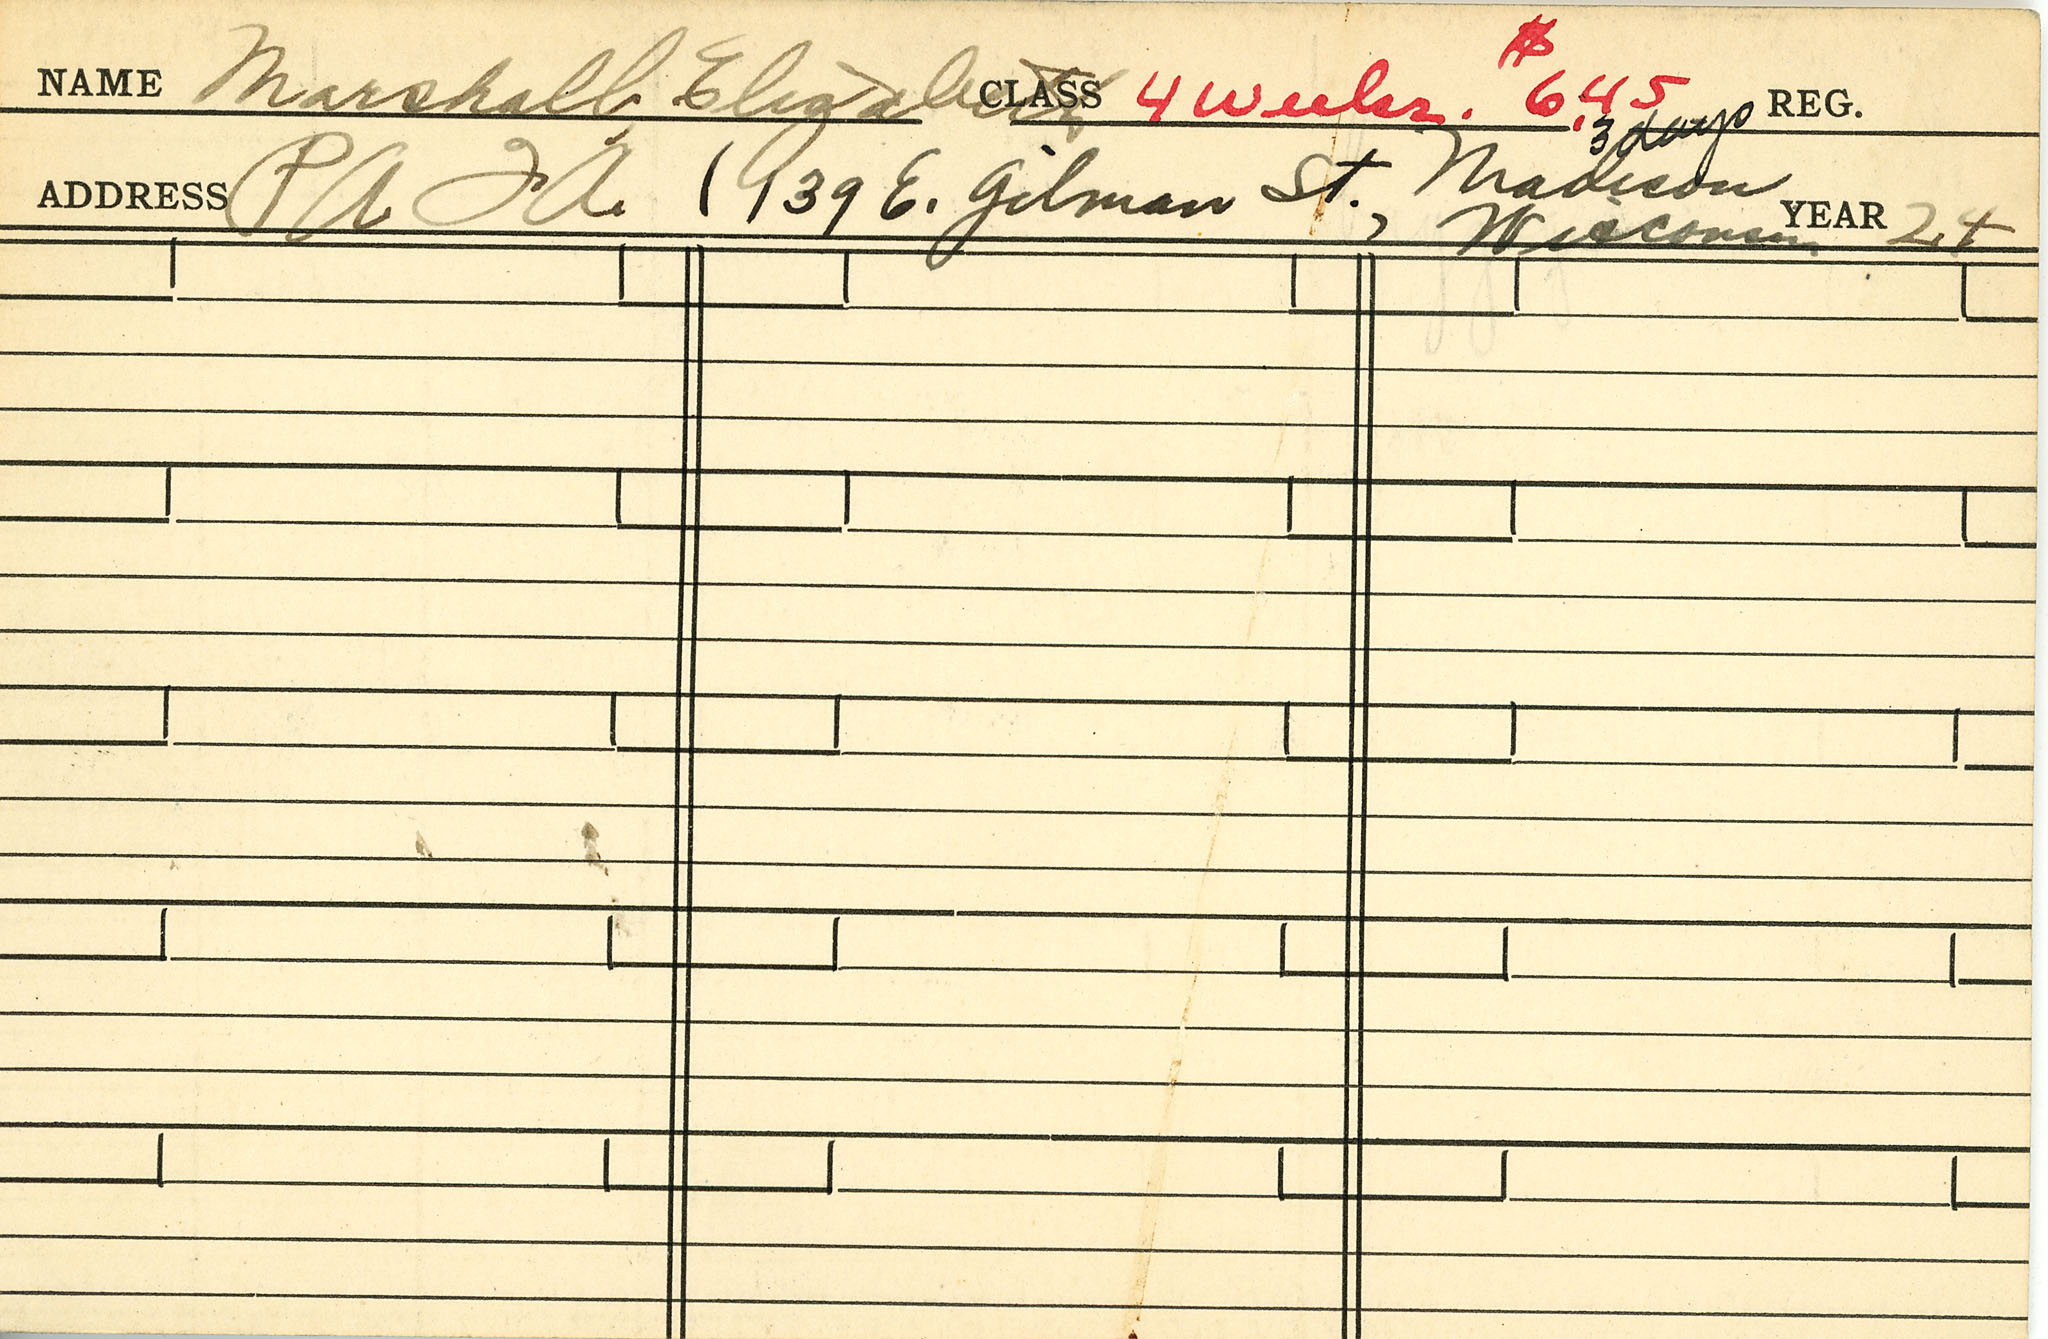 NAME Marshall, Elizabeth CLASS 4 weeks. $6.45 REG.
3 days
ADDRESS P.A. F.A. (939 E. Gilman St., Madison
Wisconsin YEAR 24